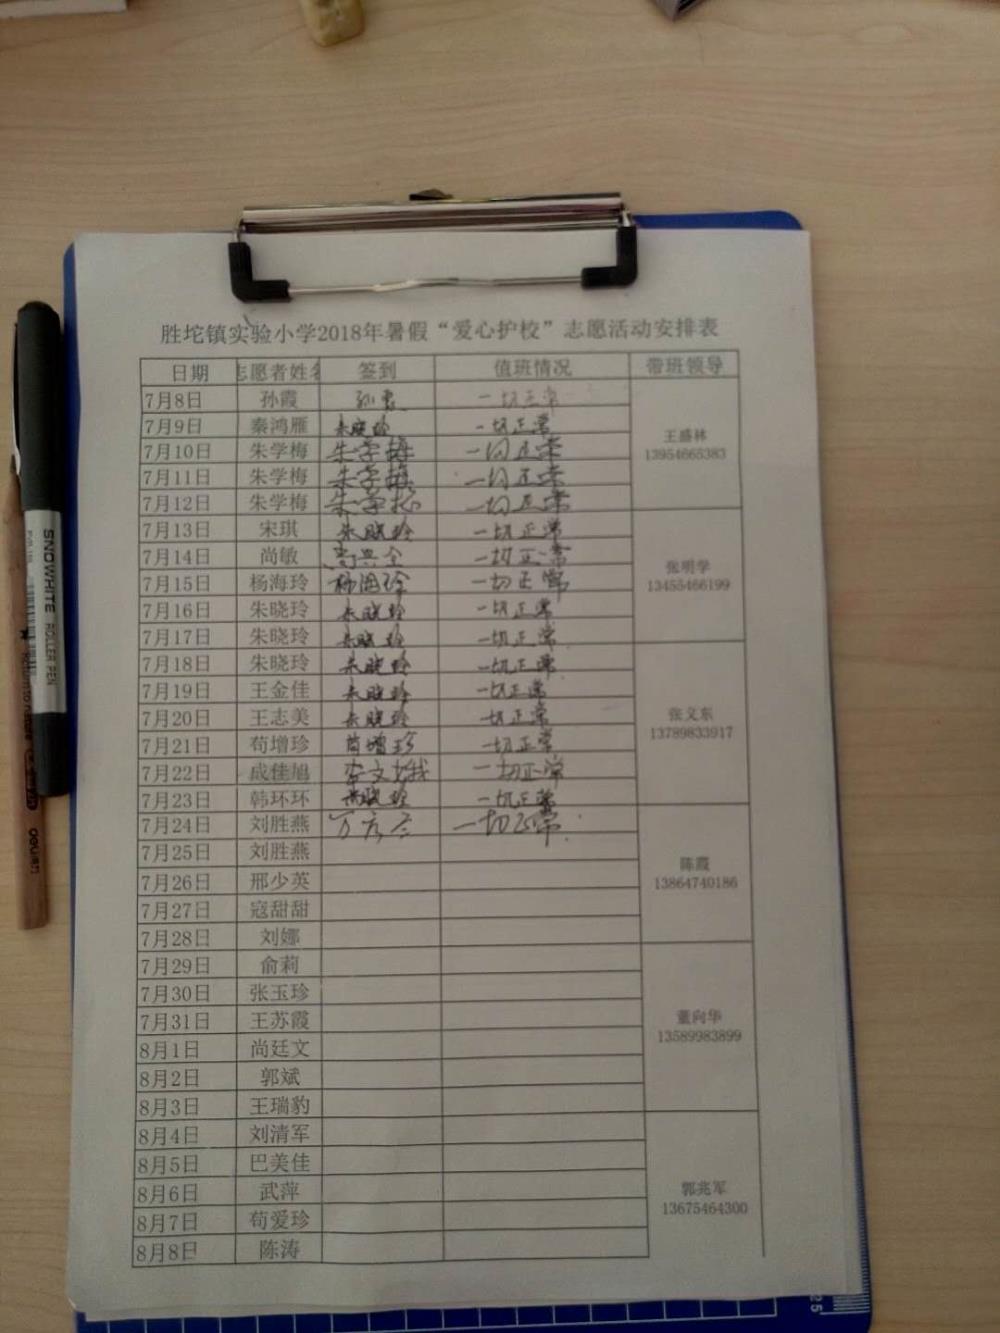 胜坨镇实验小学2018年暑假“爱心护校”志愿活动安排表
日期 志愿者姓名 签到 值班情况 带班领导
7月8日 孙霞 孙霞 一切正常
7月9日 秦鸿雁 朱晓玲 一切正常
王盛林
7月10日 朱学梅 朱学梅 一切正常
13954665383
7月11日 朱学梅 朱学梅 一切正常
7月12日 朱学梅 朱学梅 一切正常
7月13日 宋琪 朱晓玲 一切正常
7月14日 尚敏 一切正常
张明学
7月15日 杨海玲 杨海玲 一切正常
13455466199
7月16日 朱晓玲 朱晓玲 一切正常
7月17日 朱晓玲 朱晓玲 一切正常
7月18日 朱晓玲 朱晓玲 一切正常
7月19日 王金佳 朱晓玲 一切正常
7月20日 王志美 朱晓玲 一切正常
张义东
13789833917
7月21日 荀增珍 荀增珍 一切正常
7月22日 成佳旭 一切正常
7月23日 韩环环 朱晓玲 一切正常
7月24日 刘胜燕 一切正常
7月25日 刘胜燕
陈霞
7月26日 邢少英
13864740186
7月27日 寇甜甜
7月28日 刘娜
7月29日 俞莉
7月30日 张玉珍
7月31日 王苏霞
董向华
13589983899
8月1日 尚廷文
8月2日 郭斌
8月3日 王瑞豹
8月4日 刘清军
8月5日 巴美佳
8月6日 武萍
郭兆军
13675464300
8月7日 荀爱珍
8月8日 陈涛
SNOWHITE ROLLER PEN
Return to nature
deli
25